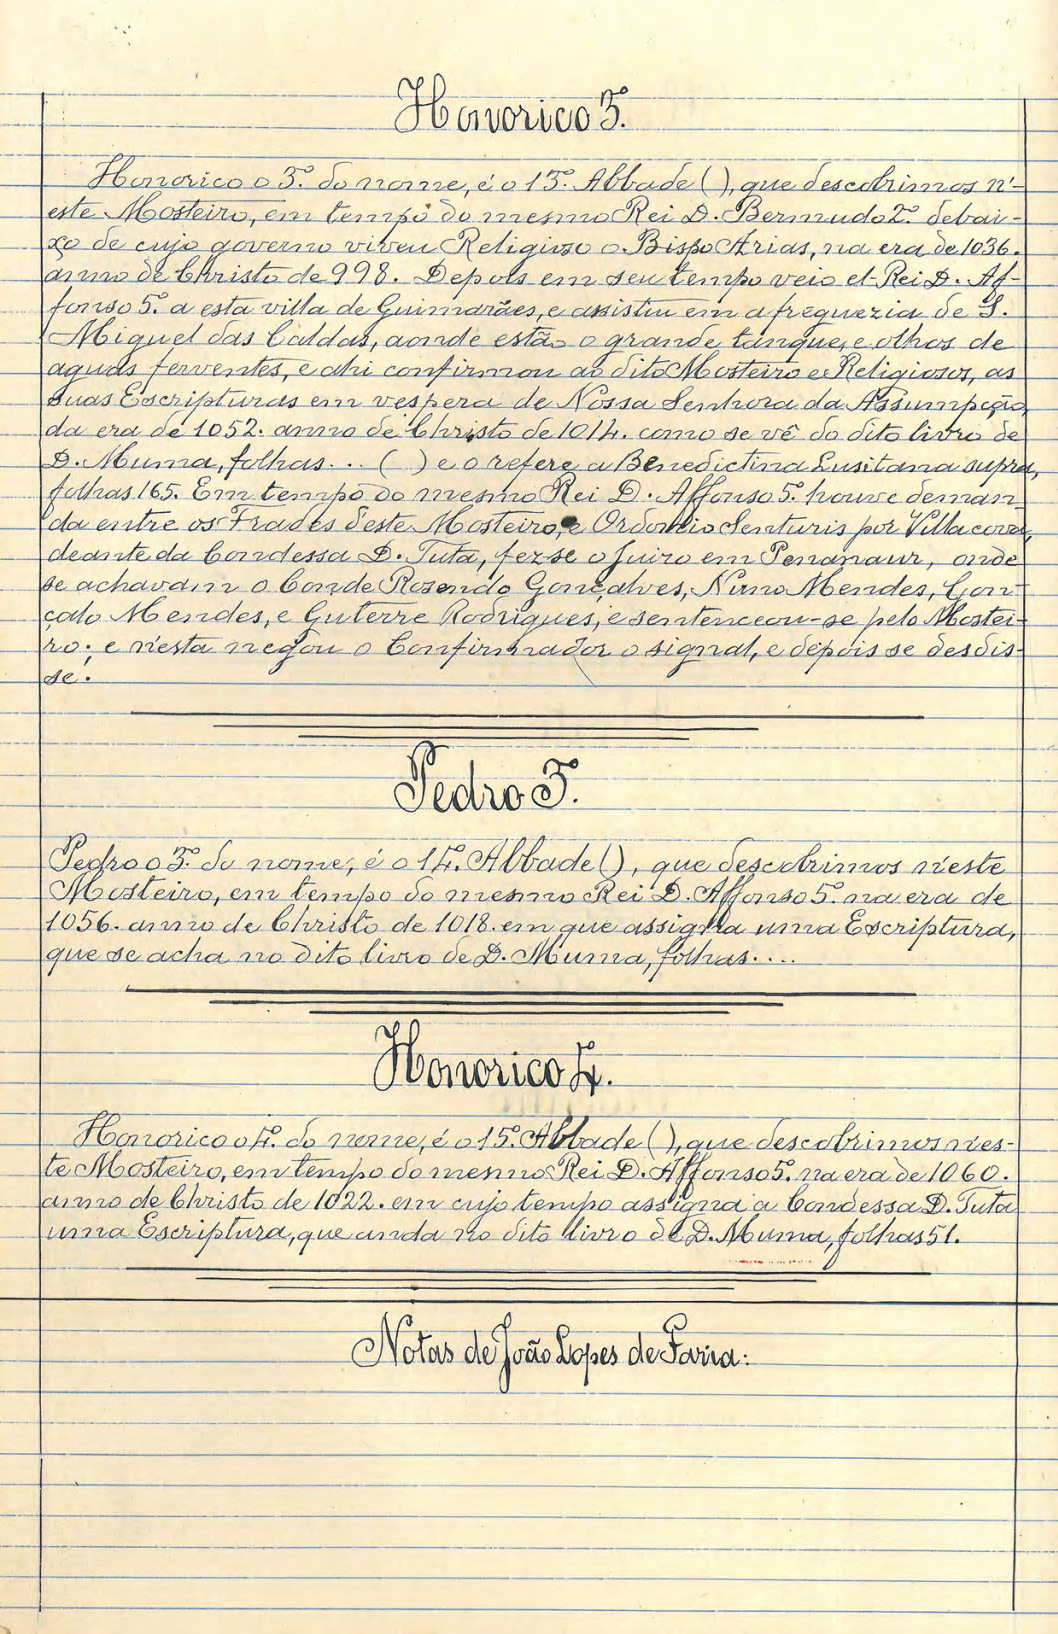 Honorico 3º.
Honorico o 3º. do nome, é o 13º. Abbade ( ), que descobrimos n'-
este Mosteiro, em tempo do mesmo Rei D. Bermudo 2º. debai-
xo de cujo governo viveu Religioso o Bispo Arias, na era de 1036.
anno de Christo de 998. Depois em seu tempo veio el-Rei D. Af-
fonso 5º. a esta villa de Guimarães, e assistiu em a freguezia de S.
Miguel das Caldas, aonde estão o grande tanque, e olhos de
aguas ferventes, e ahi confirmou ao dito Mosteiro e Religiosos, as
suas Escripturas em vespera de Nossa Senhora da Assumpção
da era de 1052. anno de Christo de 1014. como se vê do dito livro de
D. Muma, folhas... ( ) e o refere a Benedictina Lusitana supra,
folhas 165. Em tempo do mesmo Rei D. Affonso 5º. houve deman-
da entre os Frades d'este Mosteiro, e Ordonio Senturis por Villa cova,
deante da Condessa D. Tuta, fez-se o Juizo em Penanaur, onde
se achavam o Conde Rosendo Gonçalves, Nuno Mendes, Gon-
çalo Mendes, e Guterre Rodrigues, e sentenceou-se pelo Mostei-
ro; e n'esta negou o Confirmador o signal, e depois se desdis-
se.
Pedro 3º.
Pedro o 3º. do nome, é o 14º. Abbade ( ), que descobrimos n'este
Mosteiro, em tempo do mesmo Rei D. Affonso 5º. na era de
1056. anno de Christo de 1018. em que assigna uma Escriptura,
que se acha no dito livro de D. Muma, folhas....
Honorico 4º.
Honorico o 4º. do nome, é o 15º. Abbade ( ), que descobrimos n'es-
te Mosteiro, em tempo do mesmo Rei D. Affonso 5º. na era de 1060.
anno de Christo de 1022. em cujo tempo assigna a Condessa D. Tuta
uma Escriptura, que anda no dito livro de D. Muma, folhas 51.
Notas de João Lopes de Faria: